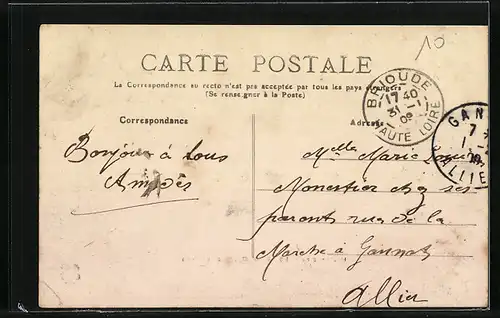 10
CARTE POSTALE
La Correspondance au recto n'est pas acceptée par tous les pays étrangers
(Se renseigner à la Poste)
Correspondance
Adresse
BRIOUDE
17 40
31 -1
09
HAUTE LOIRE
GANN
7
1
09
ALLIE
Bonjour à tous
Amitiés
Melle Marie Louise
Monestier chez ses
parents rue de la
Marche à Gannat
Allier